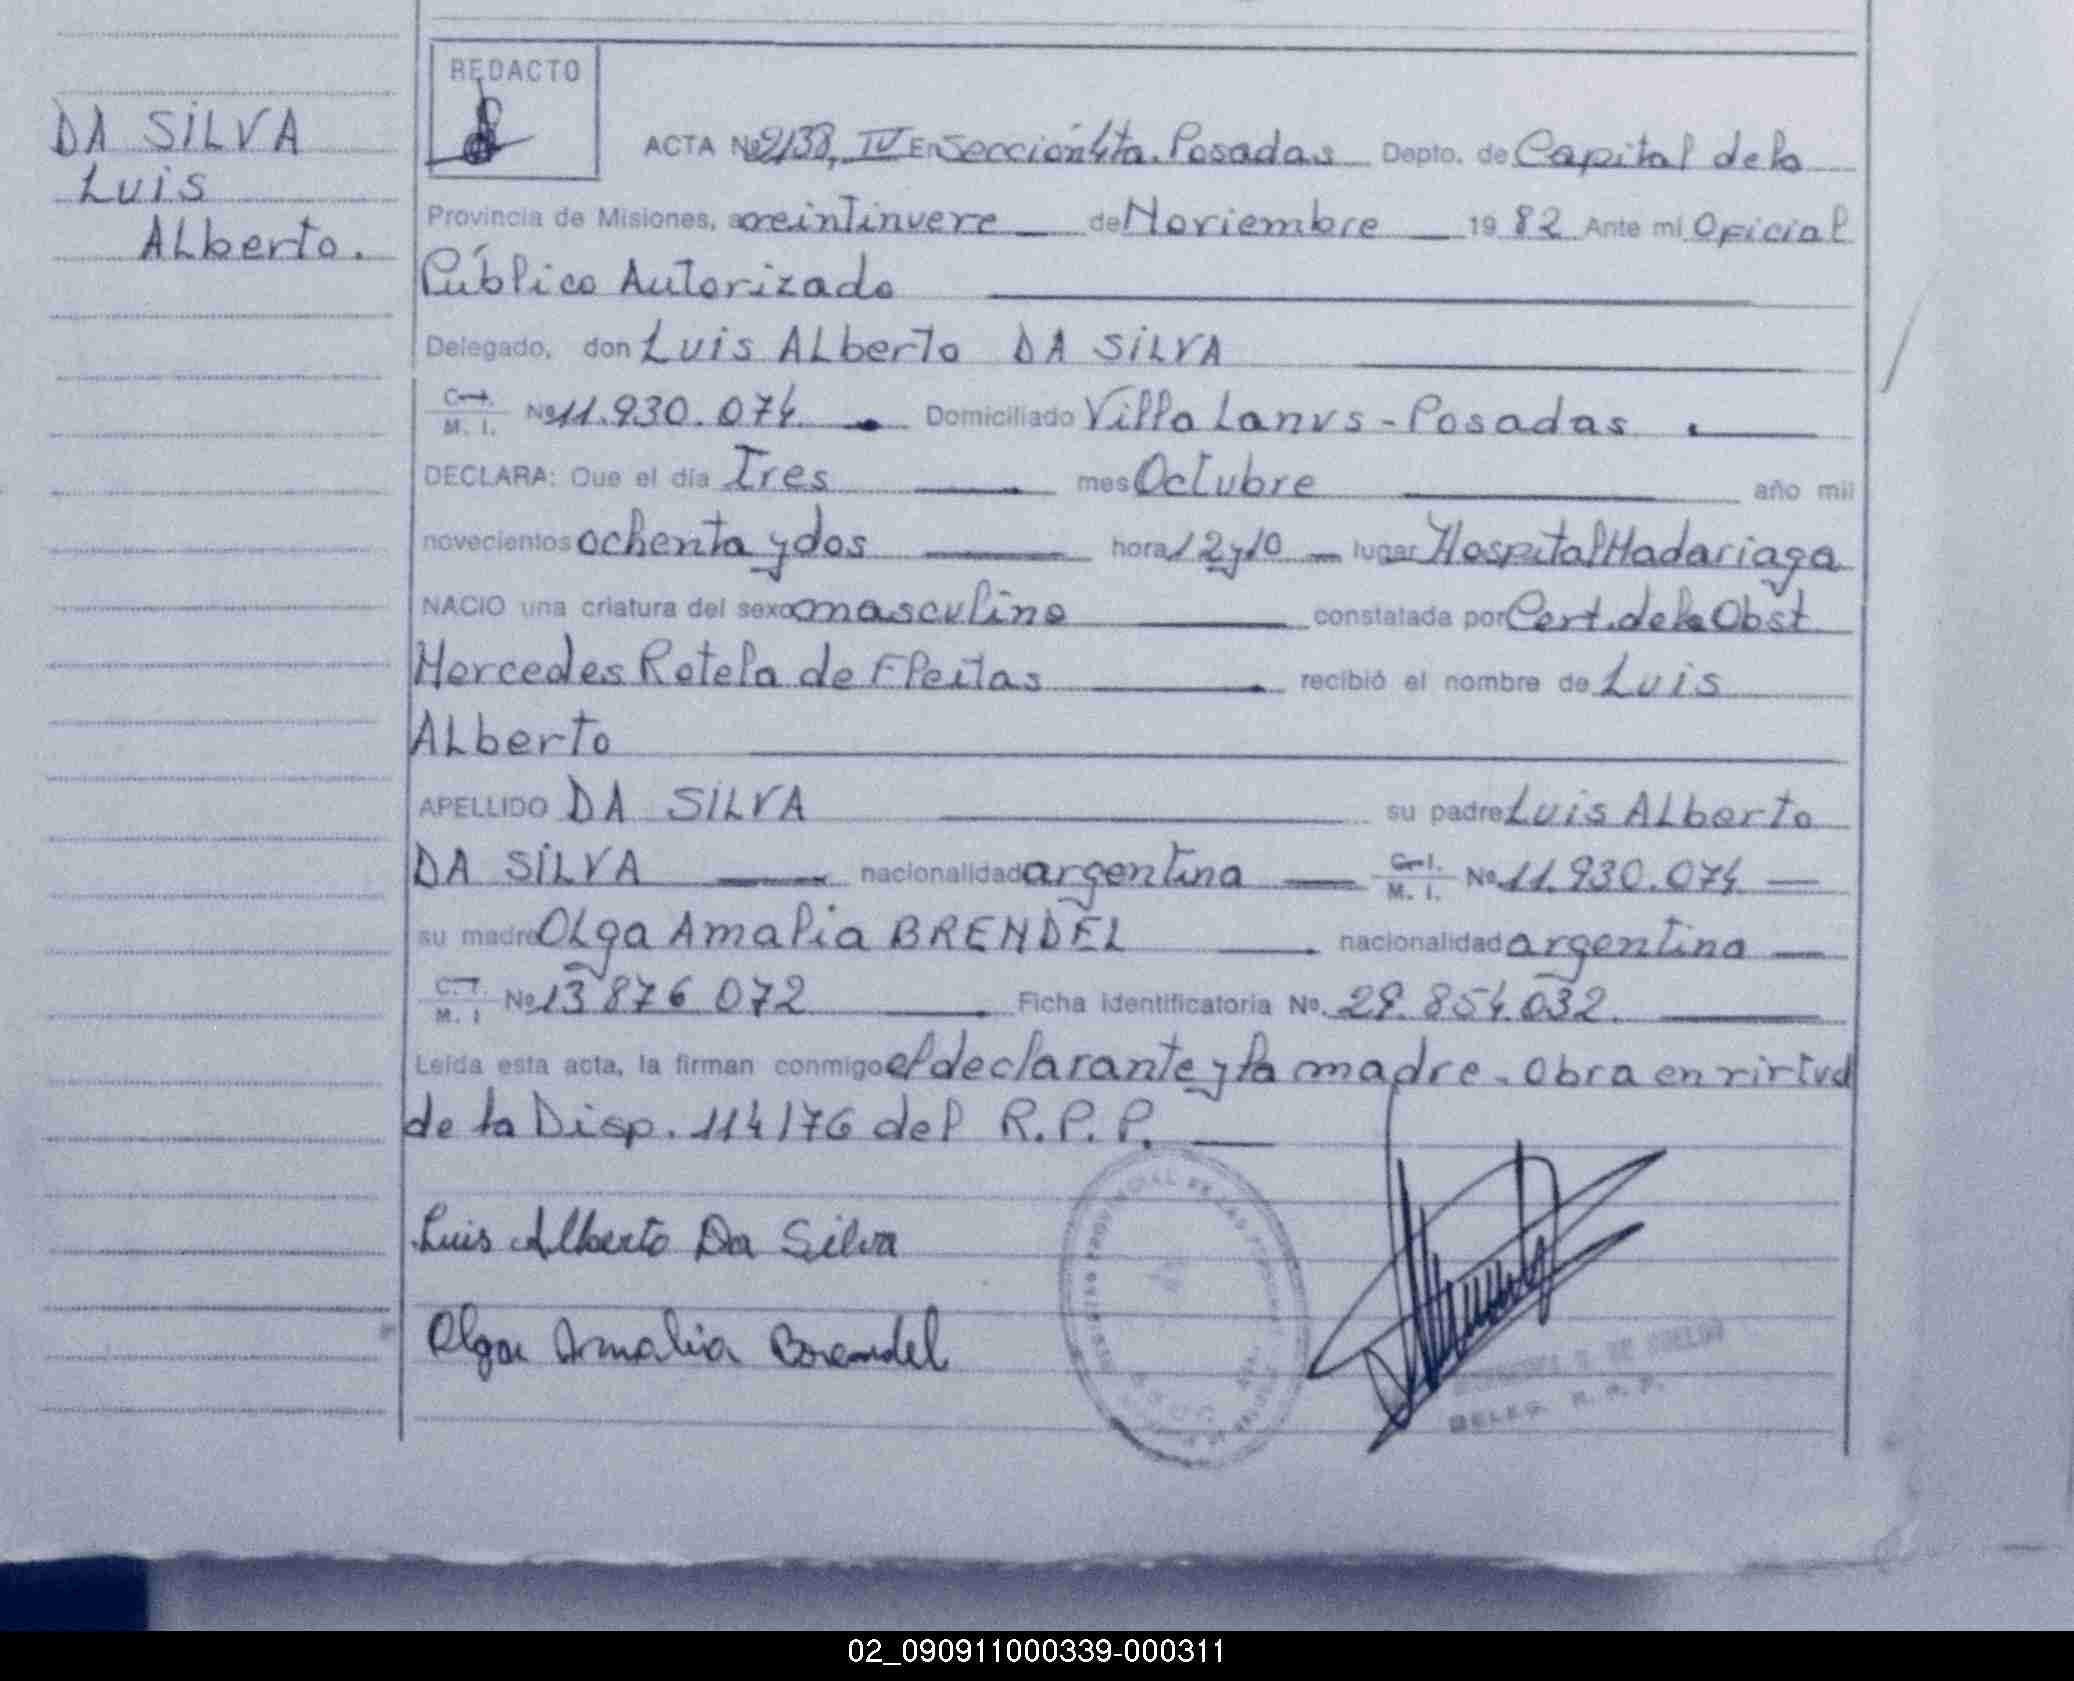 REDACTO
DA SILVA
Luis
ALberto.
ACTA Nº 2138, IV En Sección 4ta. Posadas Depto. de Capital de la
Provincia de Misiones, a veintinueve de Noviembre 1982 Ante mí Oficial
Público Autorizado
Delegado, don Luis ALberto DA SILVA
C. I. M. I. Nº 11.930.074 Domiciliado Villa Lanus - Posadas
DECLARA: Que el día Tres mes Octubre año mil
novecientos ochenta y dos hora 12 y 10 lugar Hospital Madariaga
NACIO una criatura del sexo masculino constatada por Cert. de la Obst
Mercedes Rotela de Fleitas recibió el nombre de Luis
ALberto
APELLIDO DA SILVA su padre Luis ALberto
DA SILVA nacionalidad argentina C. I. M. I. Nº 11.930.074
su madre OLga Amalia BRENDEL nacionalidad argentina
C. I. M. I Nº 13 876 072 Ficha identificatoria Nº. 29.854.032.
Leída esta acta, la firman conmigo el declarante y la madre. Obra en virtud
de la Disp. 114/76 del R.P.P.
Luis Alberto Da Silva
Olga Amalia Brendel
DELEG. R. P. P.
02_090911000339-000311